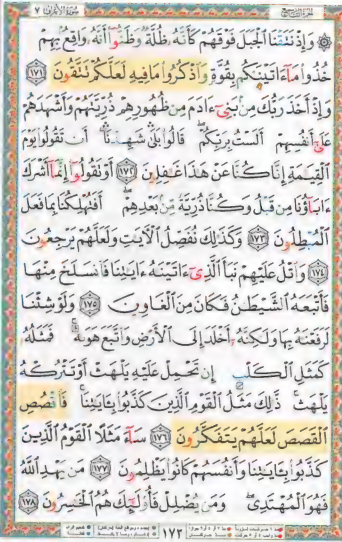 سورة الأعراف ٧
الجزء التاسع
۞ وَإِذْ نَتَقْنَا ٱلْجَبَلَ فَوْقَهُمْ كَأَنَّهُۥ ظُلَّةٌ وَظَنُّوٓا۟ أَنَّهُۥ وَاقِعٌۢ بِهِمْ
خُذُوا۟ مَآ ءَاتَيْنَٰكُم بِقُوَّةٍ وَٱذْكُرُوا۟ مَا فِيهِ لَعَلَّكُمْ تَتَّقُونَ ١٧١
وَإِذْ أَخَذَ رَبُّكَ مِنۢ بَنِىٓ ءَادَمَ مِن ظُهُورِهِمْ ذُرِّيَّتَهُمْ وَأَشْهَدَهُمْ
عَلَىٰٓ أَنفُسِهِمْ أَلَسْتُ بِرَبِّكُمْ ۖ قَالُوا۟ بَلَىٰ ۛ شَهِدْنَآ ۛ أَن تَقُولُوا۟ يَوْمَ
ٱلْقِيَٰمَةِ إِنَّا كُنَّا عَنْ هَٰذَا غَٰفِلِينَ ١٧٢ أَوْ تَقُولُوٓا۟ إِنَّمَآ أَشْرَكَ
ءَابَآؤُنَا مِن قَبْلُ وَكُنَّا ذُرِّيَّةً مِّنۢ بَعْدِهِمْ ۖ أَفَتُهْلِكُنَا بِمَا فَعَلَ
ٱلْمُبْطِلُونَ ١٧٣ وَكَذَٰلِكَ نُفَصِّلُ ٱلْءَايَٰتِ وَلَعَلَّهُمْ يَرْجِعُونَ
١٧٤ وَٱتْلُ عَلَيْهِمْ نَبَأَ ٱلَّذِىٓ ءَاتَيْنَٰهُ ءَايَٰتِنَا فَٱنسَلَخَ مِنْهَا
فَأَتْبَعَهُ ٱلشَّيْطَٰنُ فَكَانَ مِنَ ٱلْغَاوِينَ ١٧٥ وَلَوْ شِئْنَا
لَرَفَعْنَٰهُ بِهَا وَلَٰكِنَّهُۥٓ أَخْلَدَ إِلَى ٱلْأَرْضِ وَٱتَّبَعَ هَوَىٰهُ ۚ فَمَثَلُهُۥ
كَمَثَلِ ٱلْكَلْبِ إِن تَحْمِلْ عَلَيْهِ يَلْهَثْ أَوْ تَتْرُكْهُ
يَلْهَث ۚ ذَّٰلِكَ مَثَلُ ٱلْقَوْمِ ٱلَّذِينَ كَذَّبُوا۟ بِـَٔايَٰتِنَا ۚ فَٱقْصُصِ
ٱلْقَصَصَ لَعَلَّهُمْ يَتَفَكَّرُونَ ١٧٦ سَآءَ مَثَلًا ٱلْقَوْمُ ٱلَّذِينَ
كَذَّبُوا۟ بِـَٔايَٰتِنَا وَأَنفُسَهُمْ كَانُوا۟ يَظْلِمُونَ ١٧٧ مَن يَهْدِ ٱللَّهُ
فَهُوَ ٱلْمُهْتَدِى ۖ وَمَن يُضْلِلْ فَأُو۟لَٰٓئِكَ هُمُ ٱلْخَٰسِرُونَ ١٧٨
١٧٣